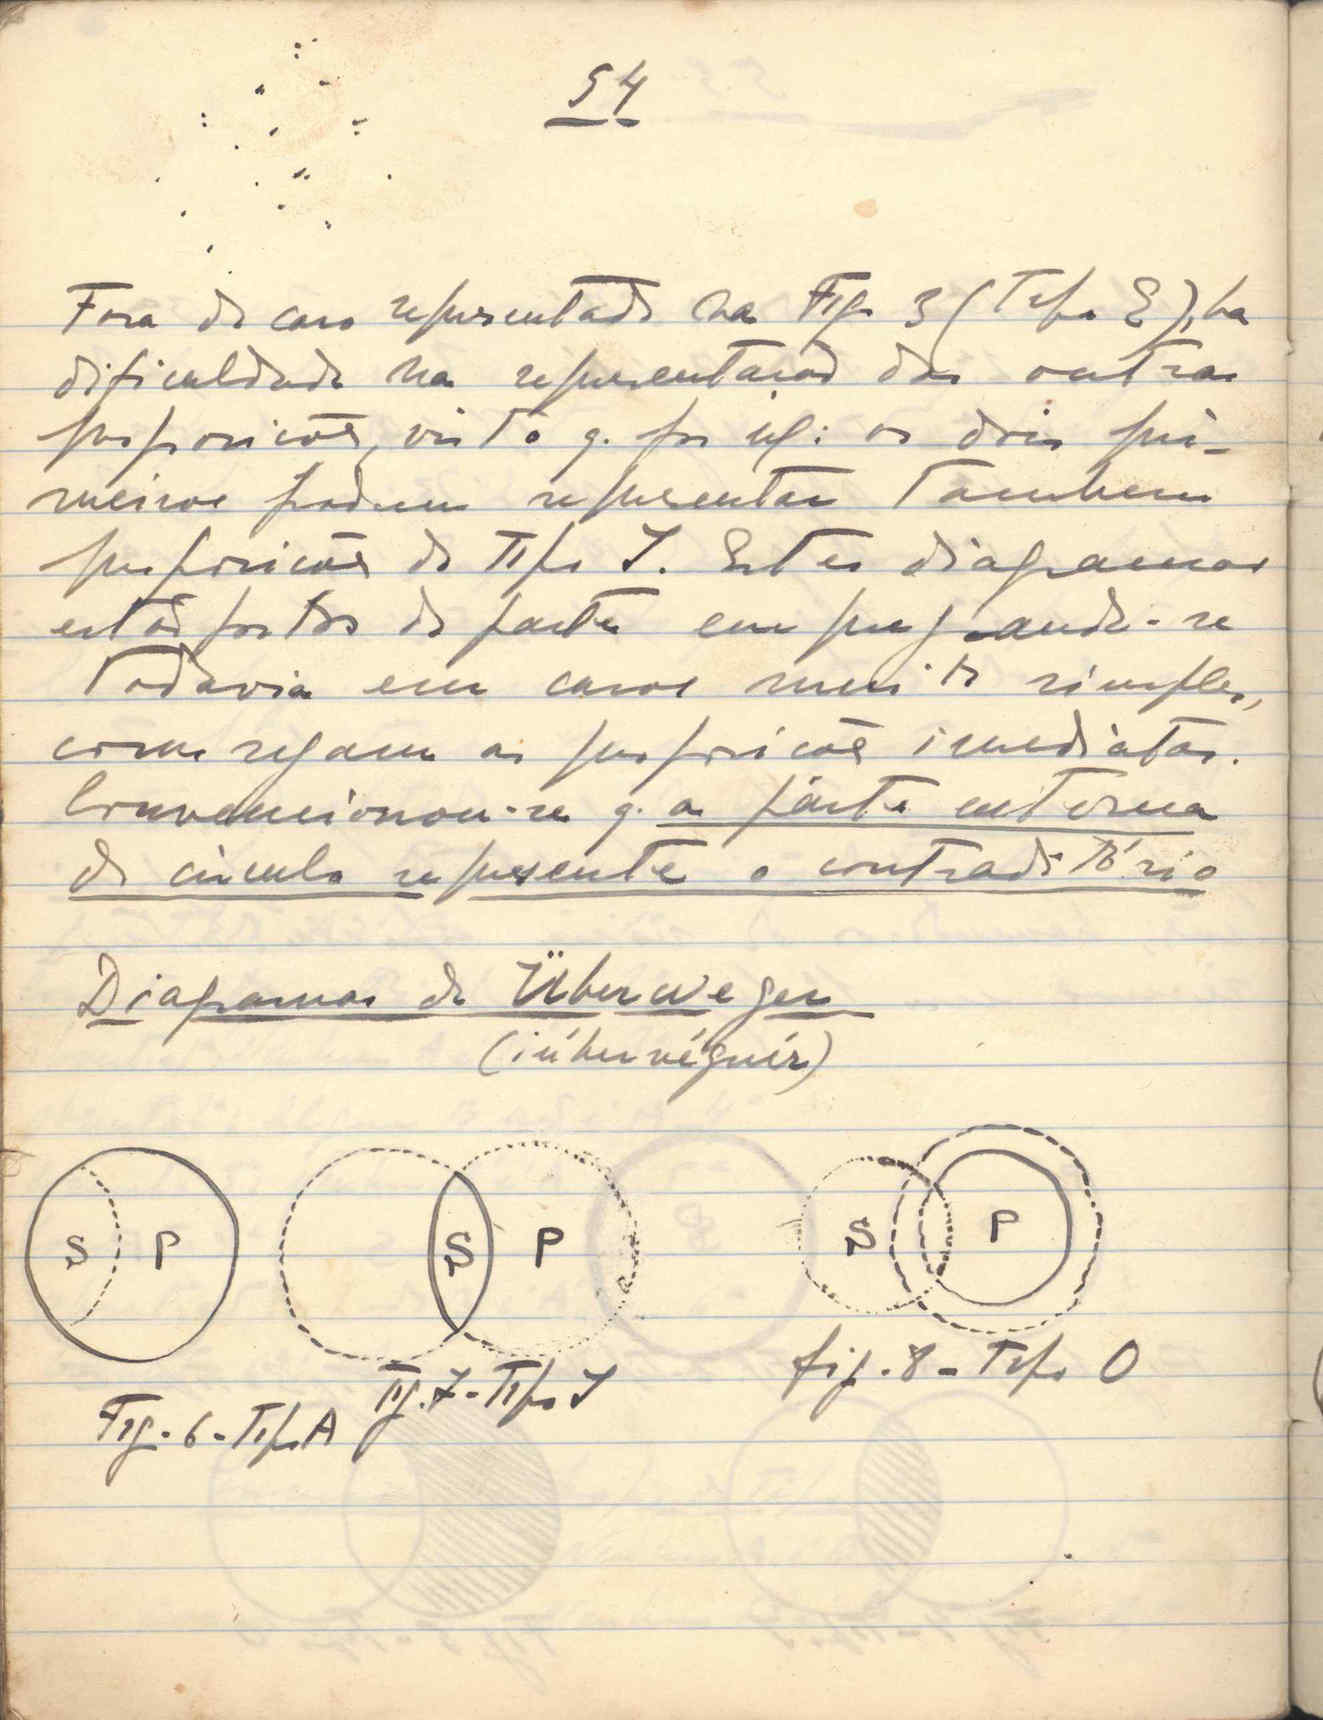 54
Fora do caso representado na Fig. 3 (Tipo E), ha
dificuldade na representacaõ das outras
proposicoẽs, visto q. por ex: os dois pri-
meiros podem representar tambem
proposicoẽs do Tipo I. Estes diagramas
estaõ postos de parte empregando-se
todavia em casos muito simples,
como sejam as proposicoẽs imediatas.
Convencionou-se q. a parte externa
do circulo represente o contraditório
Diagramas de Überweger
(iúbervéguér)
S P
S P
S P
Fig. 6 - Tipo A
Fig. 7 - Tipo I
fig. 8 - Tipo O